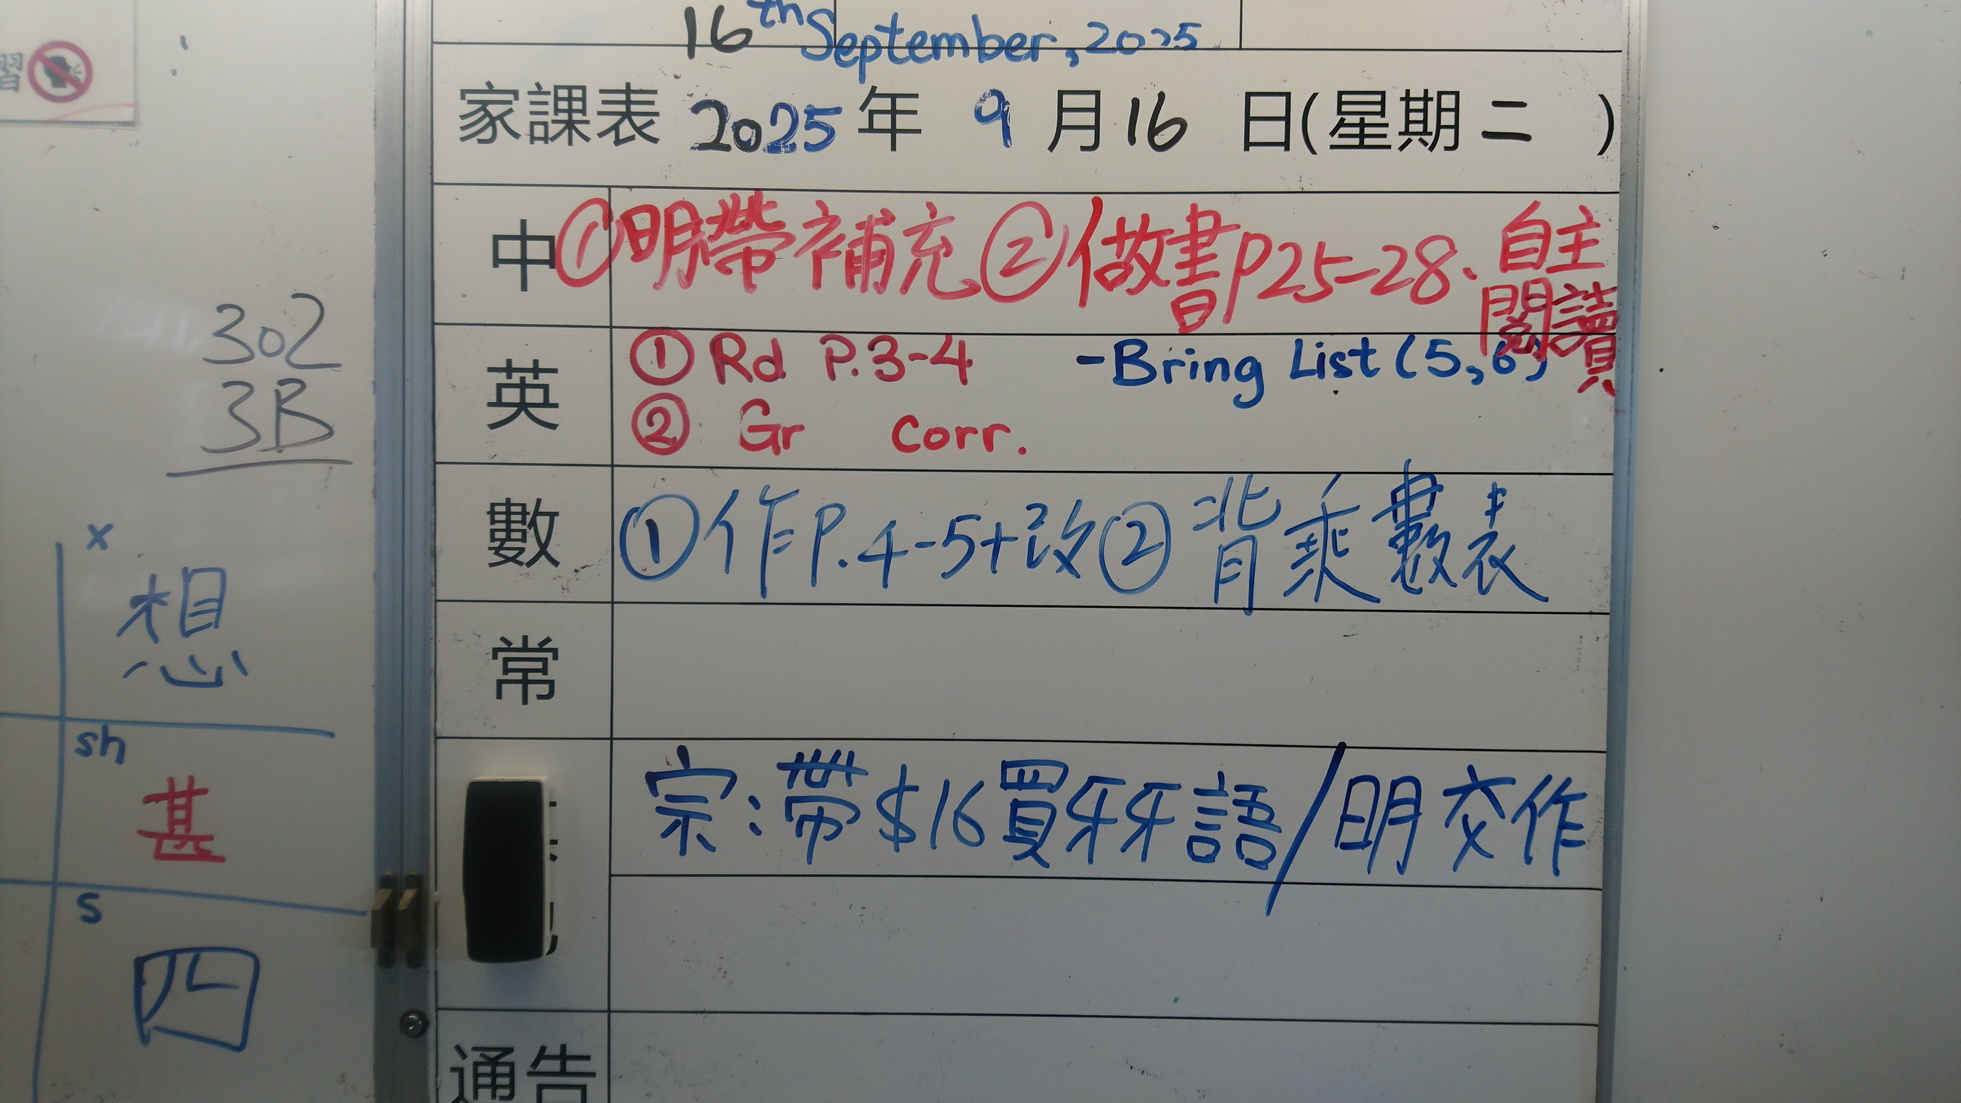 習
302
3B
x
想
sh
甚
s
四
16th September, 2025
家課表 2025年 9月16日(星期二 )
中 ①明帶補充②做書P25-28、自主
閱讀
英 ① Rd P.3-4 -Bring List (5,6)
② Gr Corr.
數 ①作P.4-5+改②背乘數表
常
宗:帶$16買牙牙語/明交作
通告